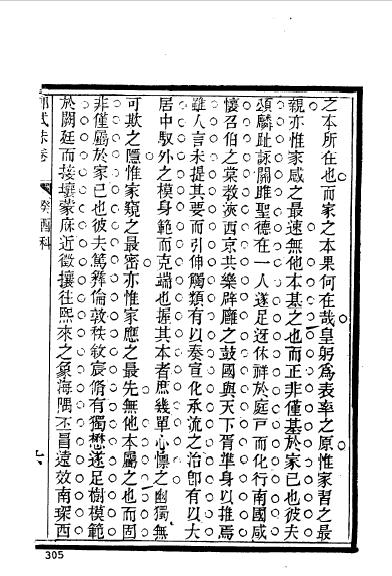 之本所在也而家之本果何在哉皇躬為表率之原惟家習之最
親亦惟家感之最速無他本基之也而正非僅基於家已也彼夫
頌麟趾詠關雎聖德在一人遂足迓休祥於庭戸而化行南國咸
懷召伯之棠教浹西京共樂辟廱之鼓國與天下胥準身以推焉
雖人言未提其要而引伸觸類有以奏宣化承流之治卽有以大
居中馭外之模身範而克端也握其本者庶幾單心懍之幽獨無
可欺之隱惟家窺之最密亦惟家應之最先無他本屬之也而固
非僅屬於家已也彼夫篤彝倫敦秩敘宸脩有獨懋遂足樹模範
於闕廷而接壤蒙庥近徵攘往熙來之象海隅丕冒遠效南琛西
癸酉科
305